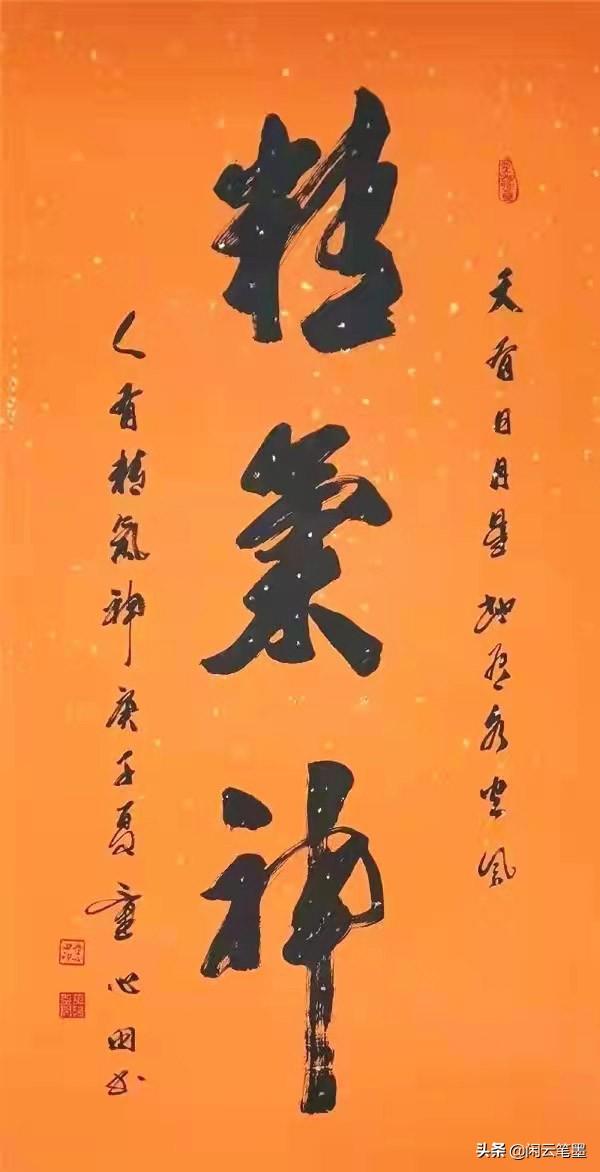 天有日月星 地有水风
精氣神
人有精氣神 庚子夏 童心田书
头条 @闲云笔墨